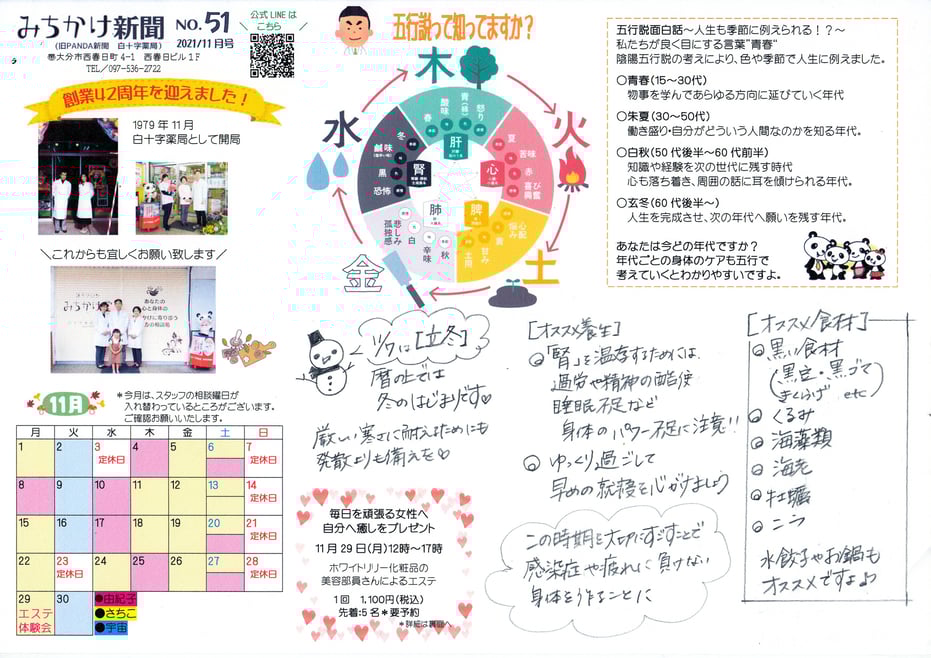 みちかけ新聞 NO.51
(旧PANDA新聞 白十字薬局) 2021/11月号
大分市西春日町4-1 西春日ビル1F
TEL/097-536-2722
公式LINEは
こちら
創業42周年を迎えました！
1979年11月
白十字薬局として開局
＼これからも宜しくお願い致します／
みちかけ
あなたの
心と身体の
五行説って知ってますか？
木
火
土
金
水
春
酸味
青(緑)
怒り
肝
夏
苦味
赤
喜び
興奮
心
心配
悩み
黄
甘み
土用
脾
秋
辛味
白
悲しみ
孤独感
肺
冬
鹹味
黒
恐怖
腎
五行説面白話～人生も季節に例えられる！？～
私たちが良く目にする言葉"青春"
陰陽五行説の考えにより、色や季節で人生に例えました。
○青春(15～30代)
物事を学んであらゆる方向に延びていく年代
○朱夏(30～50代)
働き盛り・自分がどういう人間なのかを知る年代。
○白秋(50代後半～60代前半)
知識や経験を次の世代に残す時代
心も落ち着き、周囲の話に耳を傾けられる年代。
○玄冬(60代後半～)
人生を完成させ、次の年代へ願いを残す年代。
あなたは今どの年代ですか？
年代ごとの身体のケアも五行で
考えていくとわかりやすいですよ。
11月
*今月は、スタッフの相談曜日が
入れ替わっているところがございます。
ご確認お願いいたします。
月 火 水 木 金 土 日
1 2 3 4 5 6 7
定休日 定休日
8 9 10 11 12 13 14
定休日
15 16 17 18 19 20 21
定休日
22 23 24 25 26 27 28
定休日 定休日
29 30
エステ
体験会
●由紀子
●さちこ
●宇宙
ツキは[立冬]
暦の上では
冬のはじまりです♡
厳しい寒さに耐えるためにも
発散よりも備えを♡
毎日を頑張る女性へ
自分へ癒しをプレゼント
11月29日(月)12時～17時
ホワイトリリー化粧品の
美容部員さんによるエステ
1回 1,100円(税込)
先着:5名*要予約
*詳細は裏面へ
[オススメ養生]
◎「腎」を温存するためには、
過労や精神の酷使
睡眠不足など
身体のパワー不足に注意!!
◎ゆっくり過ごして
早めの就寝を心がけましょう
この時期を大切にすごすことで
感染症や疲れに負けない
身体を作ることに
[オススメ食材]
◎黒い食材
(黒豆・黒ゴマ
きくらげ etc)
◎くるみ
◎海藻類
◎海老
◎牡蠣
◎ニラ
水餃子やお鍋も
オススメですよ♪